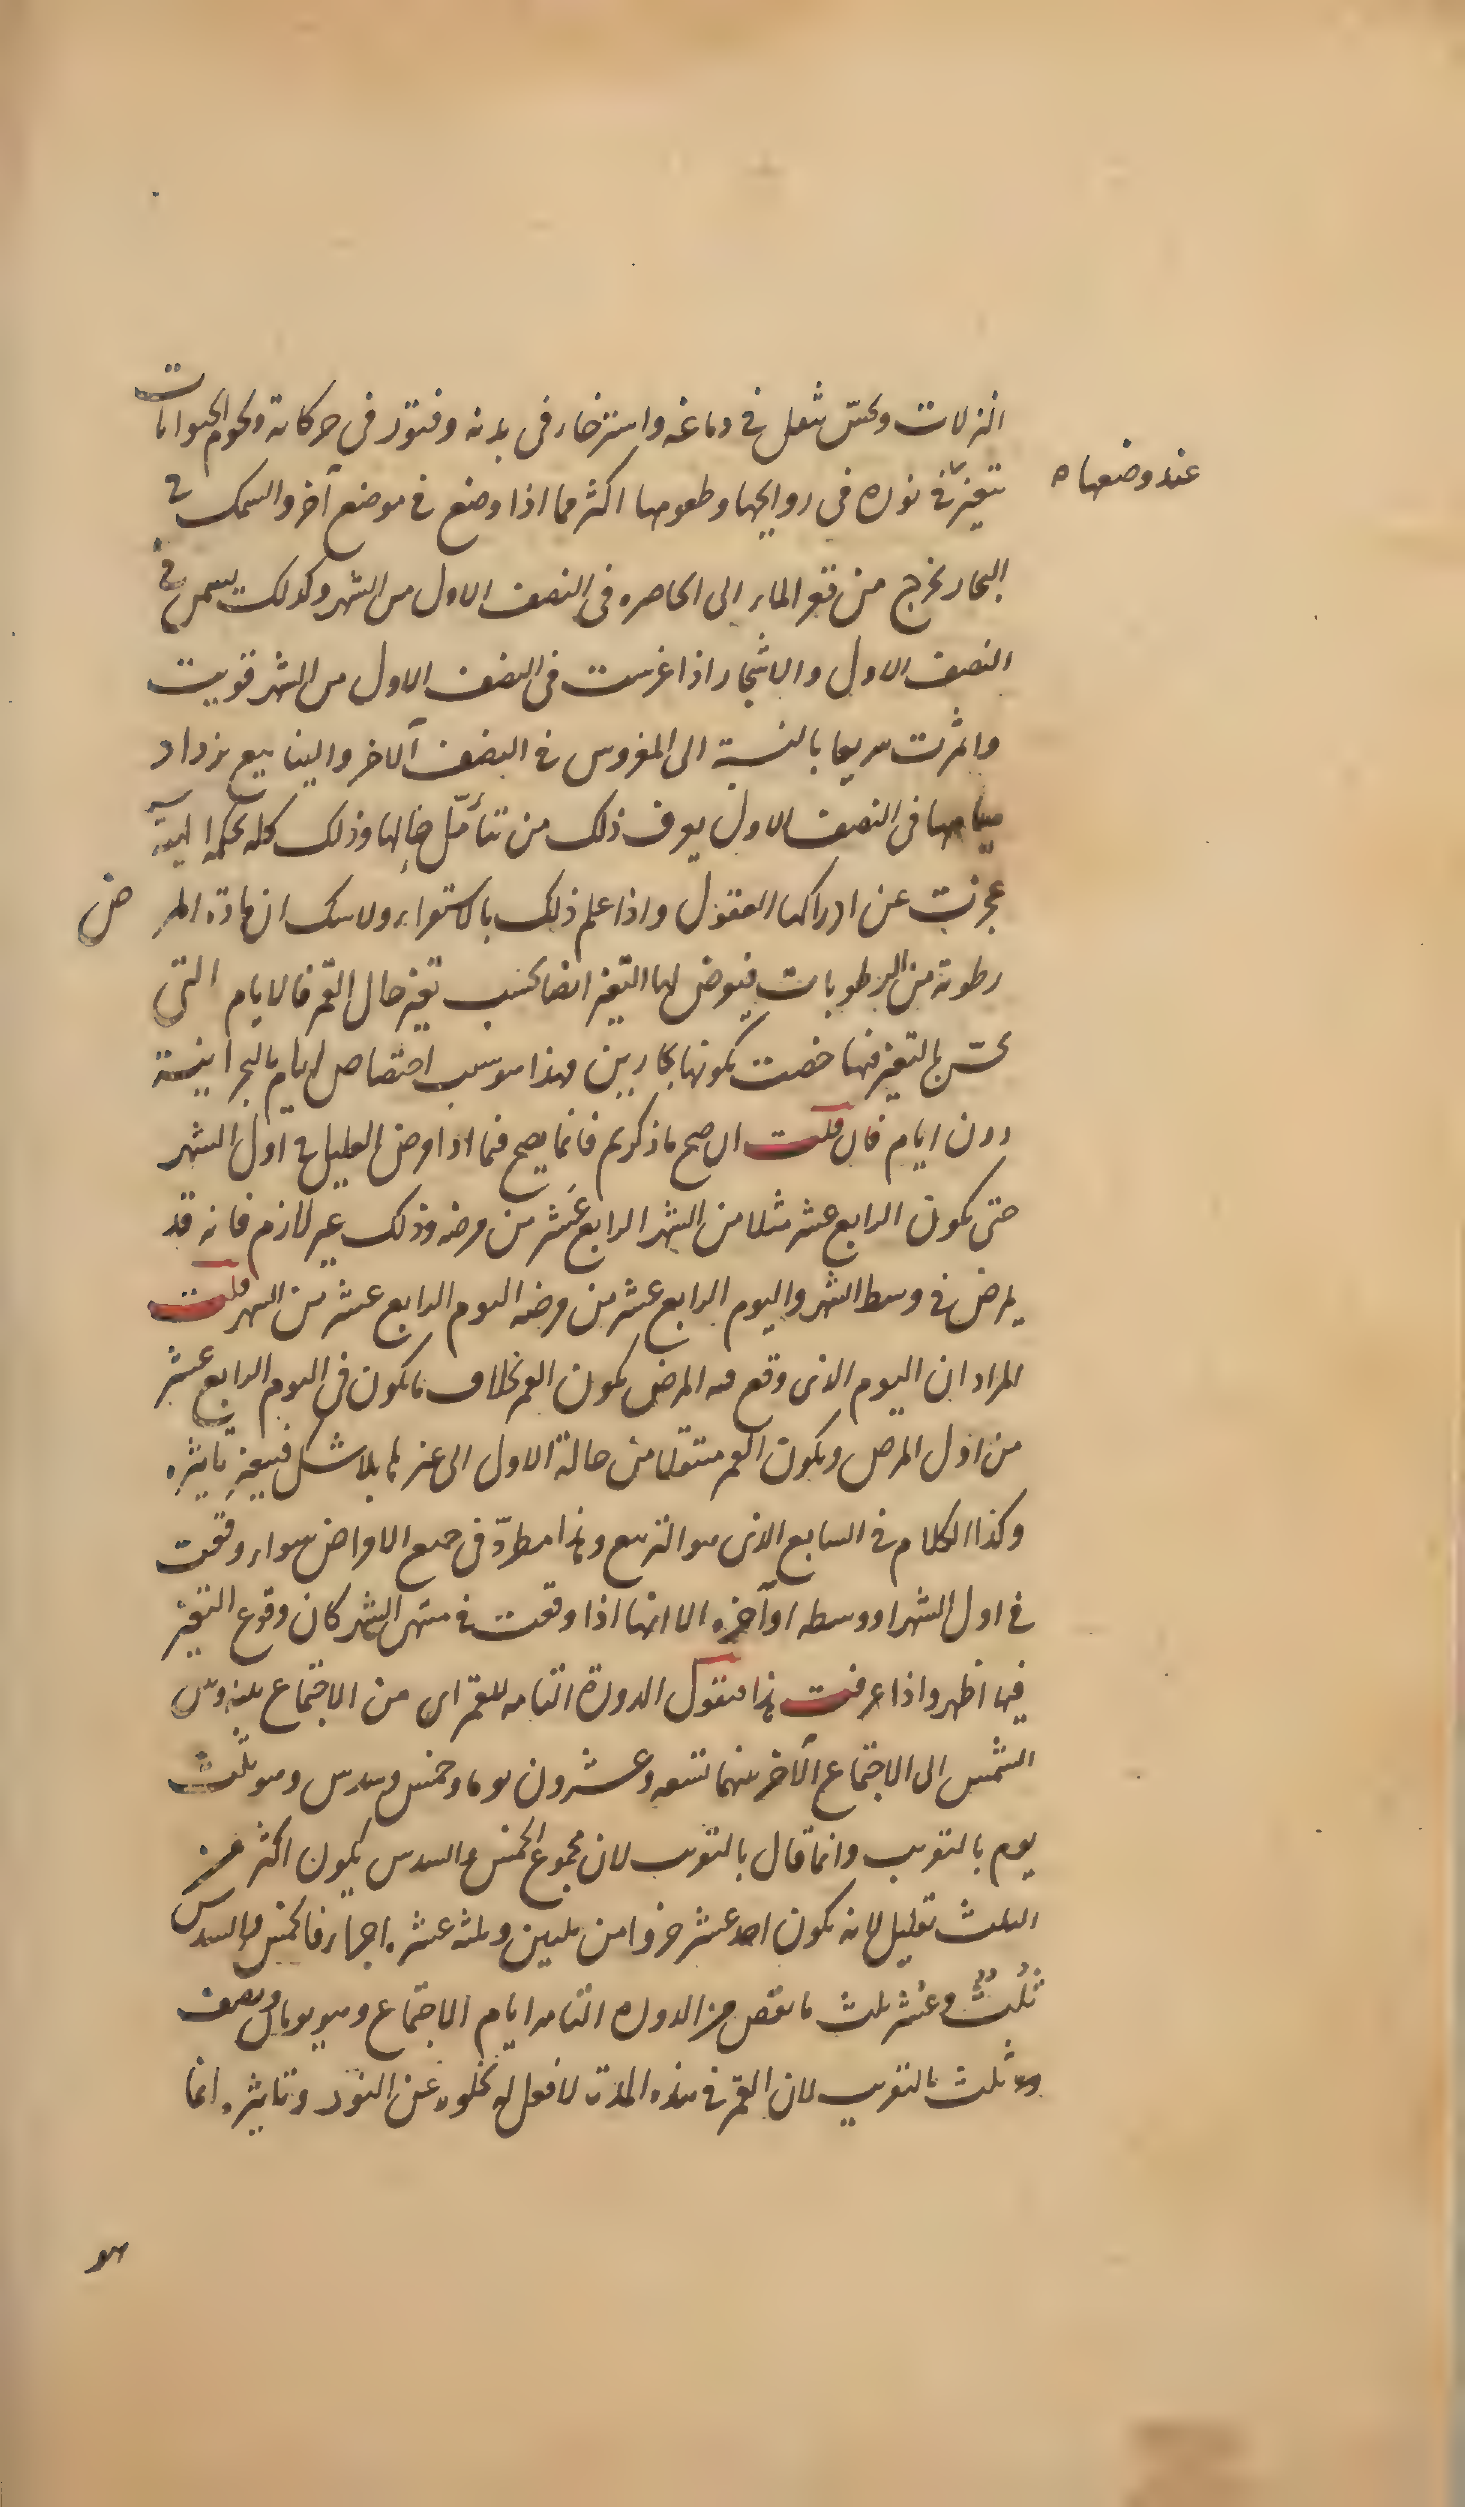 النزلات ويحسّ بثقل في دماغه واسترخاء في بدنه وفتور في حركاته ولحوم الحيوانات
عند وضعها ه
تتغير في نوره في روايحها وطعومها اكثر مما اذا وضع في موضع آخر والسمك في
البحار يخرج من قعر الماء الى الحاصره في النصف الاول من الشهر وكذلك يسمن في
النصف الاول والاشجار اذا غرست في النصف الاول من الشهر قويت
واثمرت سريعا بالنسبة الى المغروس في النصف الآخر والينابيع يزداد
مياهها في النصف الاول يعرف ذلك من تتأمّل حالها وذلك كله لحكمة الهية
عجزت عن ادراكها العقول واذا علم ذلك بالاستقراء ولا شك ان مادة المرض
رطوبة من الرطوبات فيعرض لها التغير ايضا بحسب تغير حال القمر فالايام التي
يحسّ بالتغير فيها خصت بكونها بحارين وهذا هو سبب اختصاص ايام بالبحرانية
دون ايام فان قلت ان صح ما ذكرتم فانما يصح فيما اذا مرض العليل في اول الشهر
حتى يكون الرابع عشر مثلا من الشهر الرابع عشر من مرضه وذلك غير لازم فانه قد
يمرض في وسط الشهر واليوم الرابع عشر من مرضه اليوم الرابع عشر من الشهر قلت
المراد ان اليوم الذي وقع فيه المرض يكون القمر بخلاف ما يكون في اليوم الرابع عشر
من اول المرض ويكون القمر منتقلا من حالة الاول الى غيرها بلا شك فيتغير تاثيره
وكذا الكلام في السابع الذي هو التربيع وهذا مطردّ في جميع الامراض سواء وقعت
في اول الشهر او وسطه او آخره الا انها اذا وقعت في منتهى الشهر كان وقوع التغير
فيها اظهر واذا عرفت هذا فنقول الدورة التامه للقمر اى من الاجتماع بينه وبين
الشمس الى الاجتماع الآخر بينهما تسعه وعشرون يوما وخمس وسدس وهو ثلث
يوم بالتقريب وانما قال بالتقريب لان مجموع الخمس والسدس يكون اكثر من
الثلث بقليل لانه يكون احد عشر جزوا من ثلثين وثلثه عشره اجزاء فالخمس والسدس
ثلث وعشر ثلث ما نقص من الدوره التامه ايام الاجتماع وهو يومان ونصف
وثلث بالتقريب لان القمر في هذه المدة لا فعل له لخلوه عن النور وتاثيره انما
هو